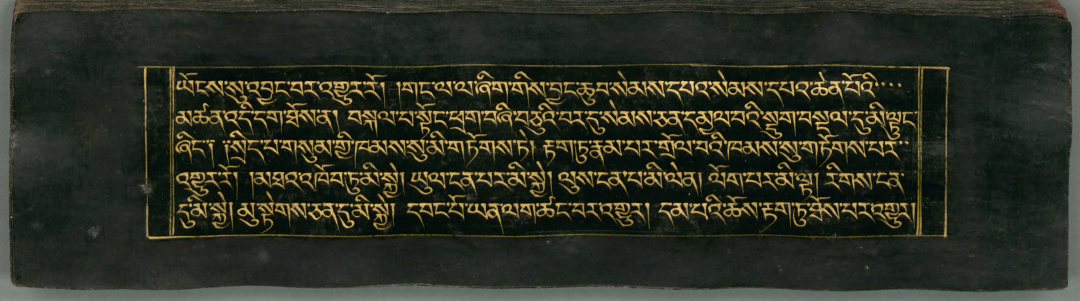 ཡོངས་སུ་འབྱང་བར་འགྱུར་རོ། །གང་ལ་ལ་ཞིག་གིས་བྱང་ཆུབ་སེམས་དཔའ་སེམས་དཔའ་ཆེན་པོའི་
མཚན་འདི་དག་ཐོས་ན། བསྐལ་པ་སྟོང་ཕྲག་བཞི་བཅུའི་བར་དུ་སེམས་ཅན་དམྱལ་བའི་སྡུག་བསྔལ་དུ་མི་ལྟུང་
ཞིང་། །སྲིད་པ་གསུམ་གྱི་ཁམས་སུ་མི་གཏོགས་ཏེ། རྟག་ཏུ་རྣམ་པར་གྲོལ་བའི་ཁམས་སུ་གཏོགས་པར་
འགྱུར་རོ། །མཐའ་འཁོབ་ཏུ་མི་སྐྱེ། ཡུལ་ངན་པར་མི་སྐྱེ། ལུས་ངན་པ་མི་ལེན། ལོག་པར་མི་ལྟ། རིགས་ངན་
དུ་མི་སྐྱེ། མུ་སྟེགས་ཅན་དུ་མི་སྐྱེ། དབང་པོ་ཡན་ལག་ཚང་བར་འགྱུར། དམ་པའི་ཆོས་རྟག་ཏུ་ཐོས་པར་འགྱུར།